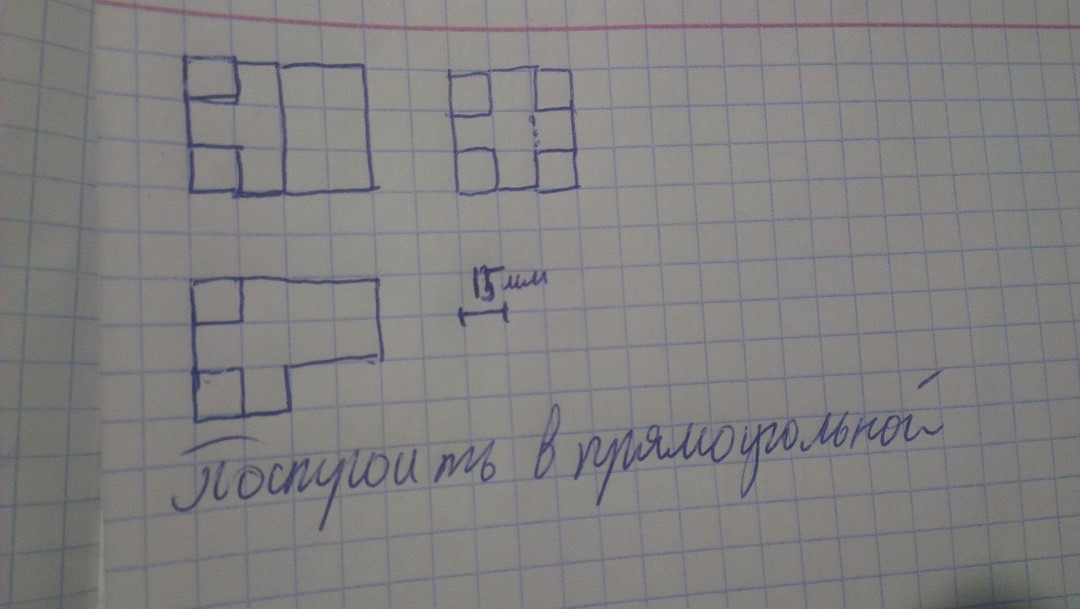 15мм
Построить в прямоугольной